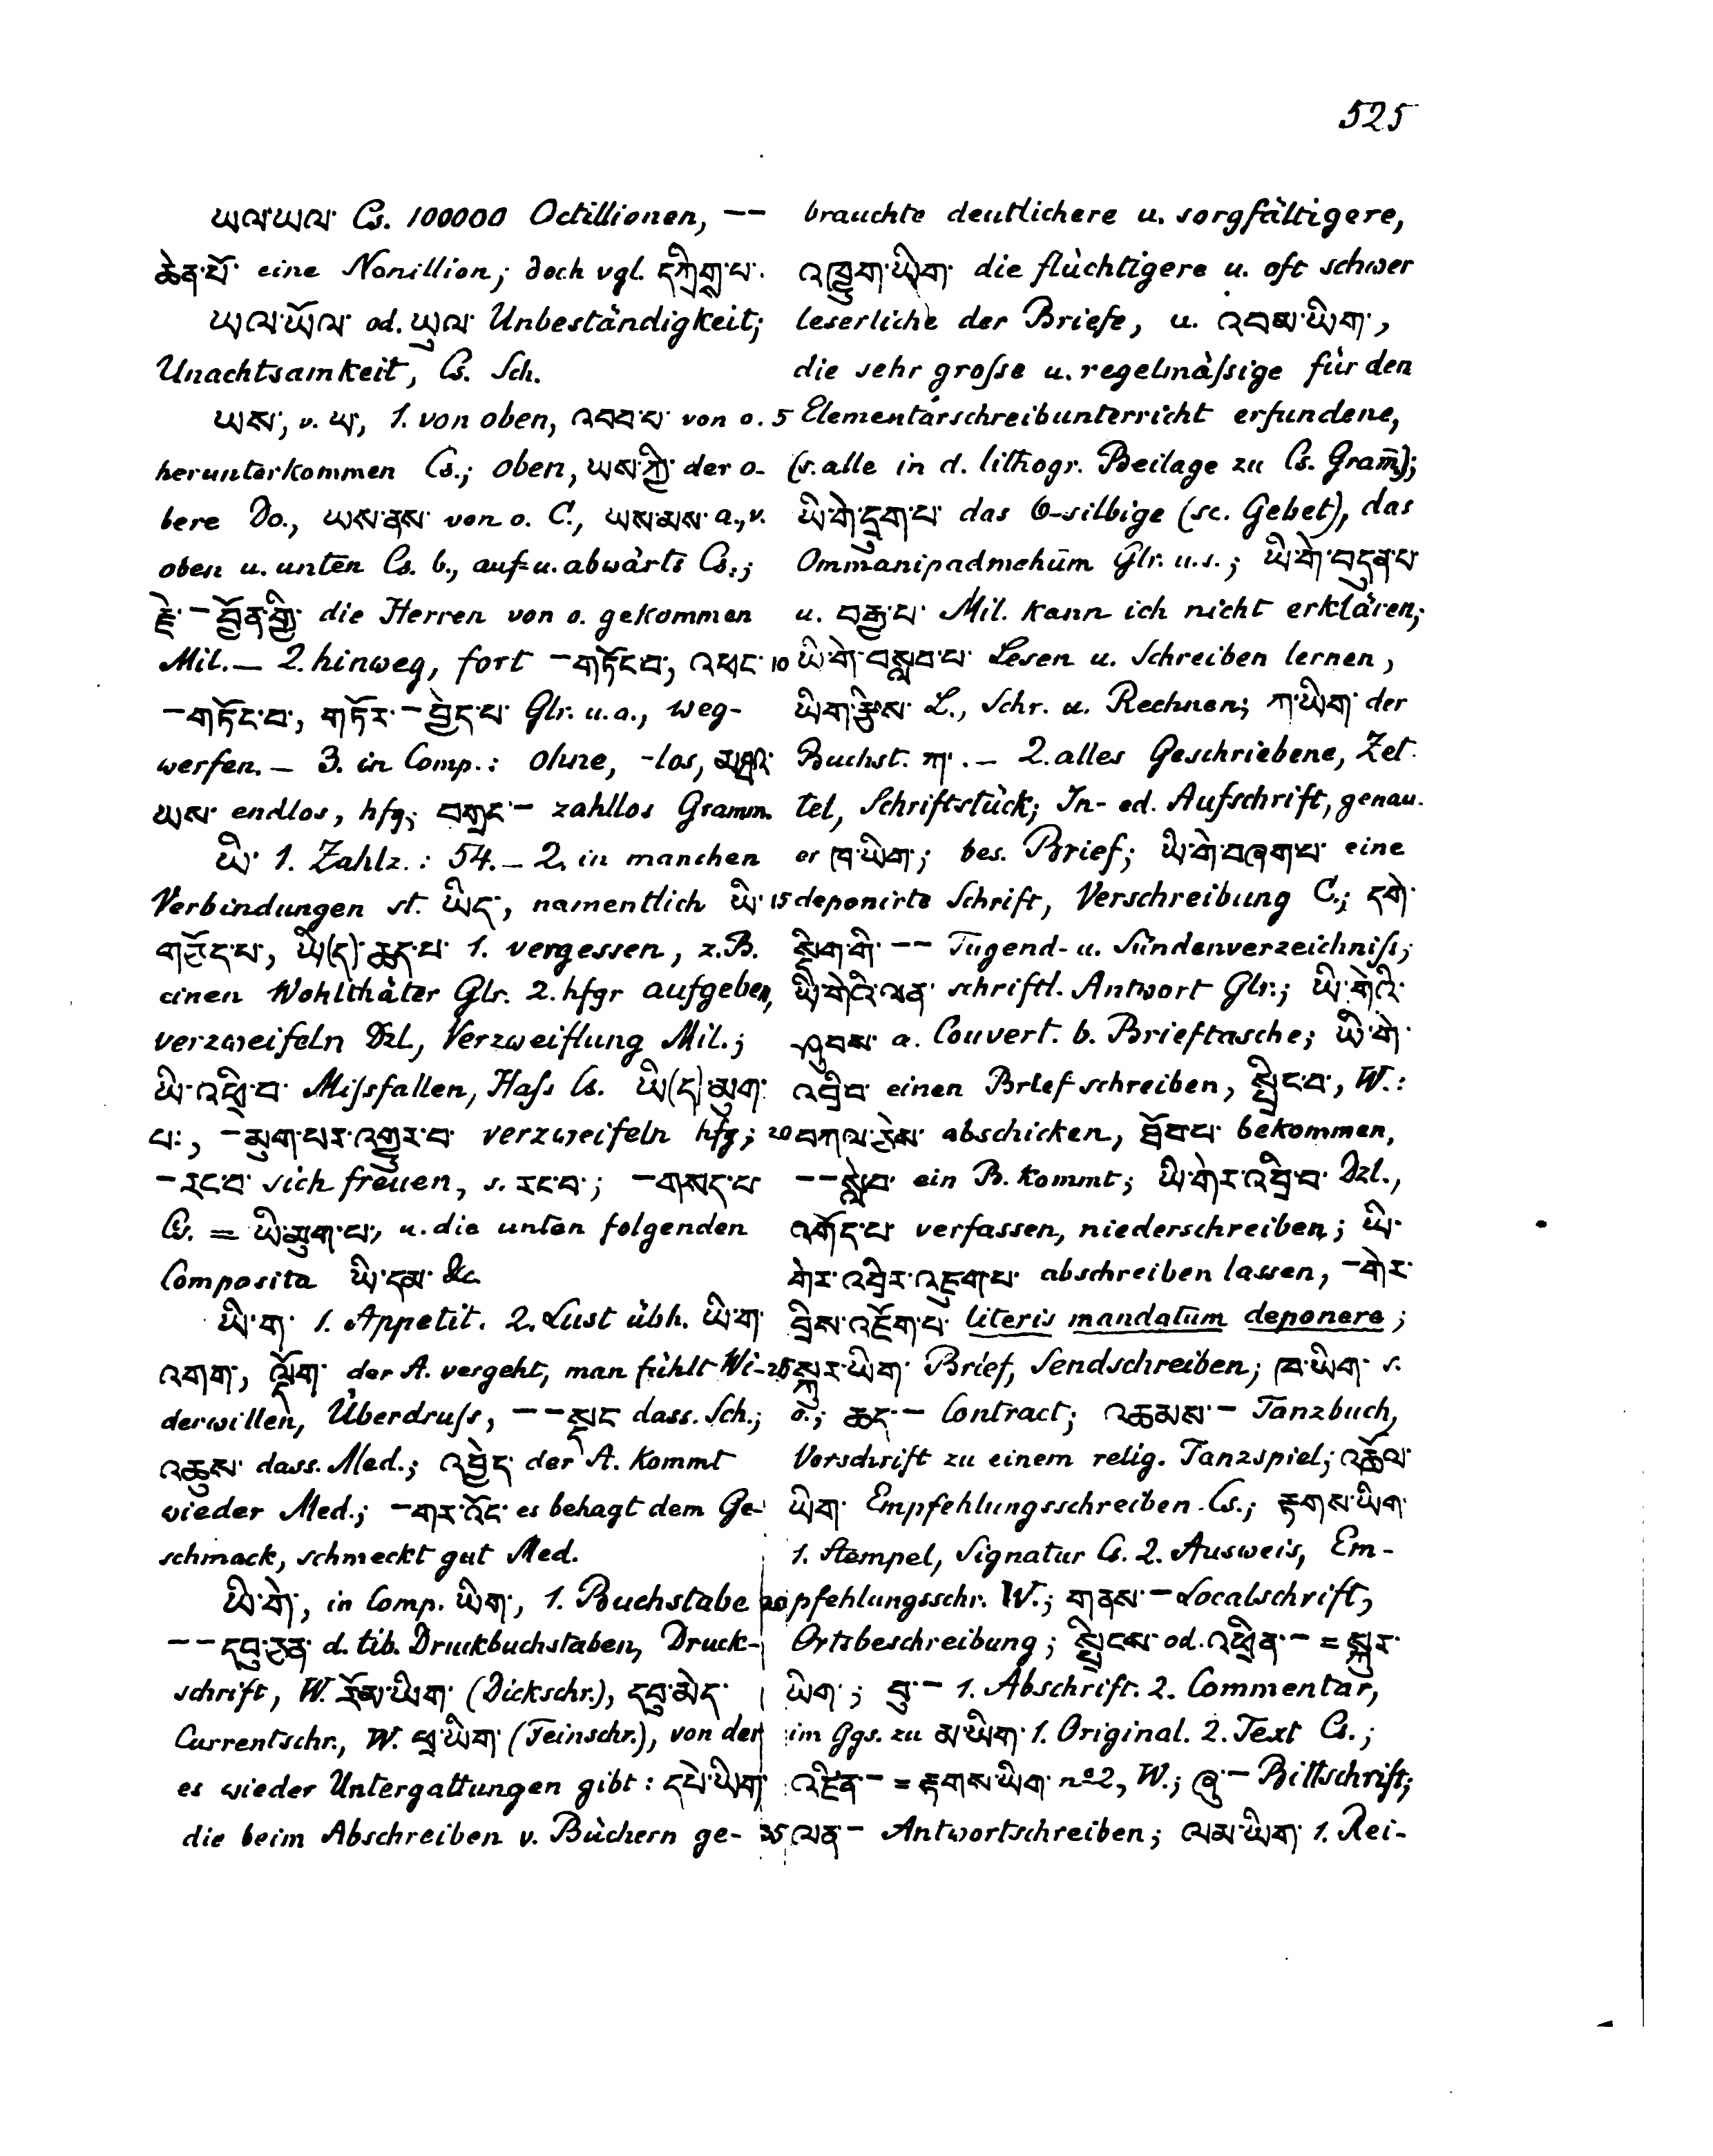 525
ཡལ་ཡལ་ Cs. 100000 Octillionen, −−
ཆེན་པོ་ eine Nonillion; doch vgl. དཀྲིགས་པ་.
ཡལ་ཡོལ་ od. ཡུལ་ Unbeständigkeit;
Unachtsamkeit, Cs. Sch.
ཡས་, v. ཡ་, 1. von oben, འབབ་པ་ von o.
herunterkommen Cs.; oben, ཡས་ཀྱི་ der o-
bere Do., ཡས་ནས་ von o. C., ཡས་མས་ a., v.
oben u. unten Cs. b., auf- u. abwärts Cs.;
རྗེ་ − བྱོན་གྱི་ die Herren von o. gekommen
Mil. — 2. hinweg, fort − གཏོང་བ་, འཕང་
− གཏོང་བ་, གཏོར་ − བྱེད་པ་ Glr. u. a., weg-
werfen. — 3. in Comp.: ohne, -los, མཐའ་
ཡས་ endlos, hfg; བགྲང་ − zahllos Gramm.
ཡི་ 1. Zahlz.: 54. — 2. in manchen
Verbindungen st. ཡིད་, namentlich ཡི་
གཏོད་པ་, ཡི(ད)་ཆད་པ་ 1. vergessen, z. B.
einen Wohlthäter Glr. 2. hfgr aufgeben,
verzweifeln Dzl., Verzweiflung Mil.;
ཡི་འཕྲི་བ་ Missfallen, Hass Cs. ཡི(ད)་མུག་
པ་, − མུག་པར་འགྱུར་བ་ verzweifeln hfg;
− རང་བ་ sich freuen, s. རང་བ་; − གསད་པ་
Cs. = ཡི་མུག་པ་, u. die unten folgenden
Composita ཡི་དམ་ &c
ཡི་ག་ 1. Appetit. 2. Lust übh. ཡི་ག་
འགག་, ལྡོག་ der A. vergeht, man fühlt Wi-
derwillen, Überdruss, −− སྡང་ dass. Sch.;
འཆུས་ dass. Med.; འབྱེད་ der A. kommt
wieder Med.; − གར་འོང་ es behagt dem Ge-
schmack, schmeckt gut Med.
ཡི་གེ་, in Comp. ཡིག་, 1. Buchstabe
−− དབུ་ཅན་ d. tib. Druckbuchstaben, Druck-
schrift, W. རོམ་ཡིག་ (Dickschr.), དབུ་མེད་
Currentschr., W. ཕྲ་ཡིག་ (Feinschr.), von der
es wieder Untergattungen gibt: དཔེ་ཡིག་
die beim Abschreiben v. Büchern ge-
brauchte deutlichere u. sorgfältigere,
འཁྱུག་ཡིག་ die flüchtigere u. oft schwer
leserliche der Briefe, u. འབམ་ཡིག་,
die sehr grosse u. regelmässige für den
5 Elementarschreibunterricht erfundene,
(s. alle in d. lithogr. Beilage zu Cs. Gram̄);
ཡི་གེ་དྲུག་པ་ das 6-silbige (sc. Gebet), das
Ommanipadmehūm Glr. u. s.; ཡི་གེ་བདུན་པ་
u. བརྒྱ་པ་ Mil. kann ich nicht erklären;
10 ཡི་གེ་བསླབ་པ་ Lesen u. Schreiben lernen,
ཡིག་རྩིས་ L., Schr. u. Rechnen; ཀ་ཡིག་ der
Buchst. ཀ་. — 2. alles Geschriebene, Zet-
tel, Schriftstück; In- od. Aufschrift, genau-
er ཁ་ཡིག་; bes. Brief; ཡི་གེ་བཞག་པ་ eine
15 deponirte Schrift, Verschreibung C.; དགེ་
སྡིག་གི་ −− Tugend- u. Sündenverzeichniss;
ཡི་གེའི་ལན་ schriftl. Antwort Glr.; ཡི་གེའི་
ཤུབས་ a. Couvert. b. Brieftasche; ཡི་གེ་
འབྲི་བ་ einen Brief schreiben, སྤྲིང་བ་, W.:
20 བཀལ་ཅེས་ abschicken, ཐོབ་པ་ bekommen,
−− སླེབ་ ein B. kommt; ཡི་གེར་འབྲི་བ་ Dzl.,
འགོད་པ་ verfassen, niederschreiben; ཡི་
གེར་འབྲིར་འཇུག་པ་ abschreiben lassen, − གེར་
བྲིས་འཇོག་པ་ literis mandatum deponere;
25 སྐུར་ཡིག་ Brief, Sendschreiben; ཁ་ཡིག་ s.
o.; ཆད་ − Contract; འཆམས་ − Tanzbuch,
Vorschrift zu einem relig. Tanzspiel; འཆོལ་
ཡིག་ Empfehlungsschreiben Cs.; རྟགས་ཡིག་
1. Stempel, Signatur Cs. 2. Ausweis, Em-
30 pfehlungsschr. W.; གནས་ − Localschrift,
Ortsbeschreibung; སྤྲིངས་ od. འཕྲིན་ − = སྐུར་
ཡིག་; བུ་ − 1. Abschrift. 2. Commentar,
im Ggs. zu མ་ཡིག་ 1. Original. 2. Text Cs.;
འཛིན་ − = རྟགས་ཡིག་ nº 2, W.; ཞུ་ − Bittschrift;
35 ལན་ − Antwortschreiben; ལམ་ཡིག་ 1. Rei-